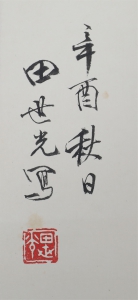 辛酉秋日
田世光写